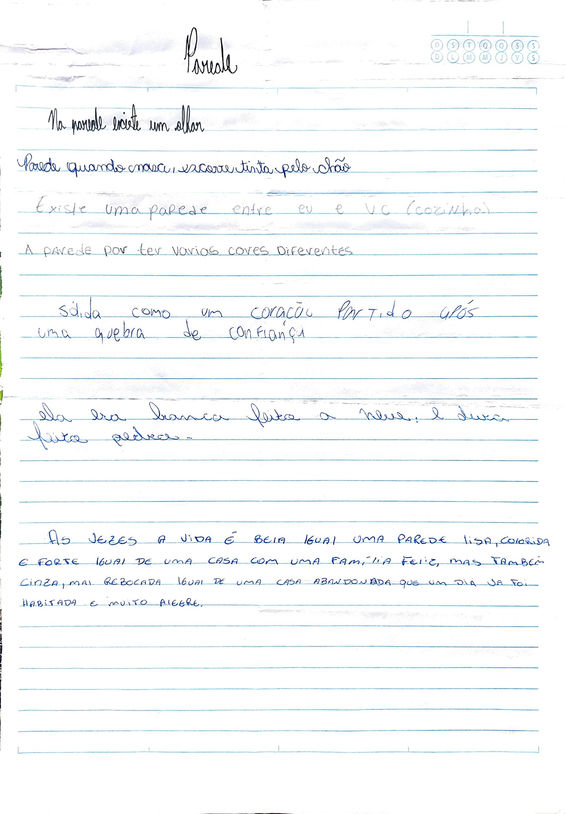 D S T Q Q S S
D L M M J V S
Parede
Na parede existe um olhar
Parede quando nasci, escorre tinta pelo chão
Existe uma parede entre eu e vc (cozinha)
A parede por ter varios cores Diferentes
sólida como um coração PARTIDO após
uma quebra de confiança
ela era branca feito a neve, e dura
feito pedra.
AS VEZES A VIDA É BELA IGUAL UMA PAREDE LISA, COLORIDA
E FORTE IGUAL DE UMA CASA COM UMA FAMÍLIA FELIZ, MAS TAMBÉM
CINZA, MAL REBOCADA IGUAL DE UMA CASA ABANDONADA QUE UM DIA JA FOI
HABITADA E MUITO ALEGRE.